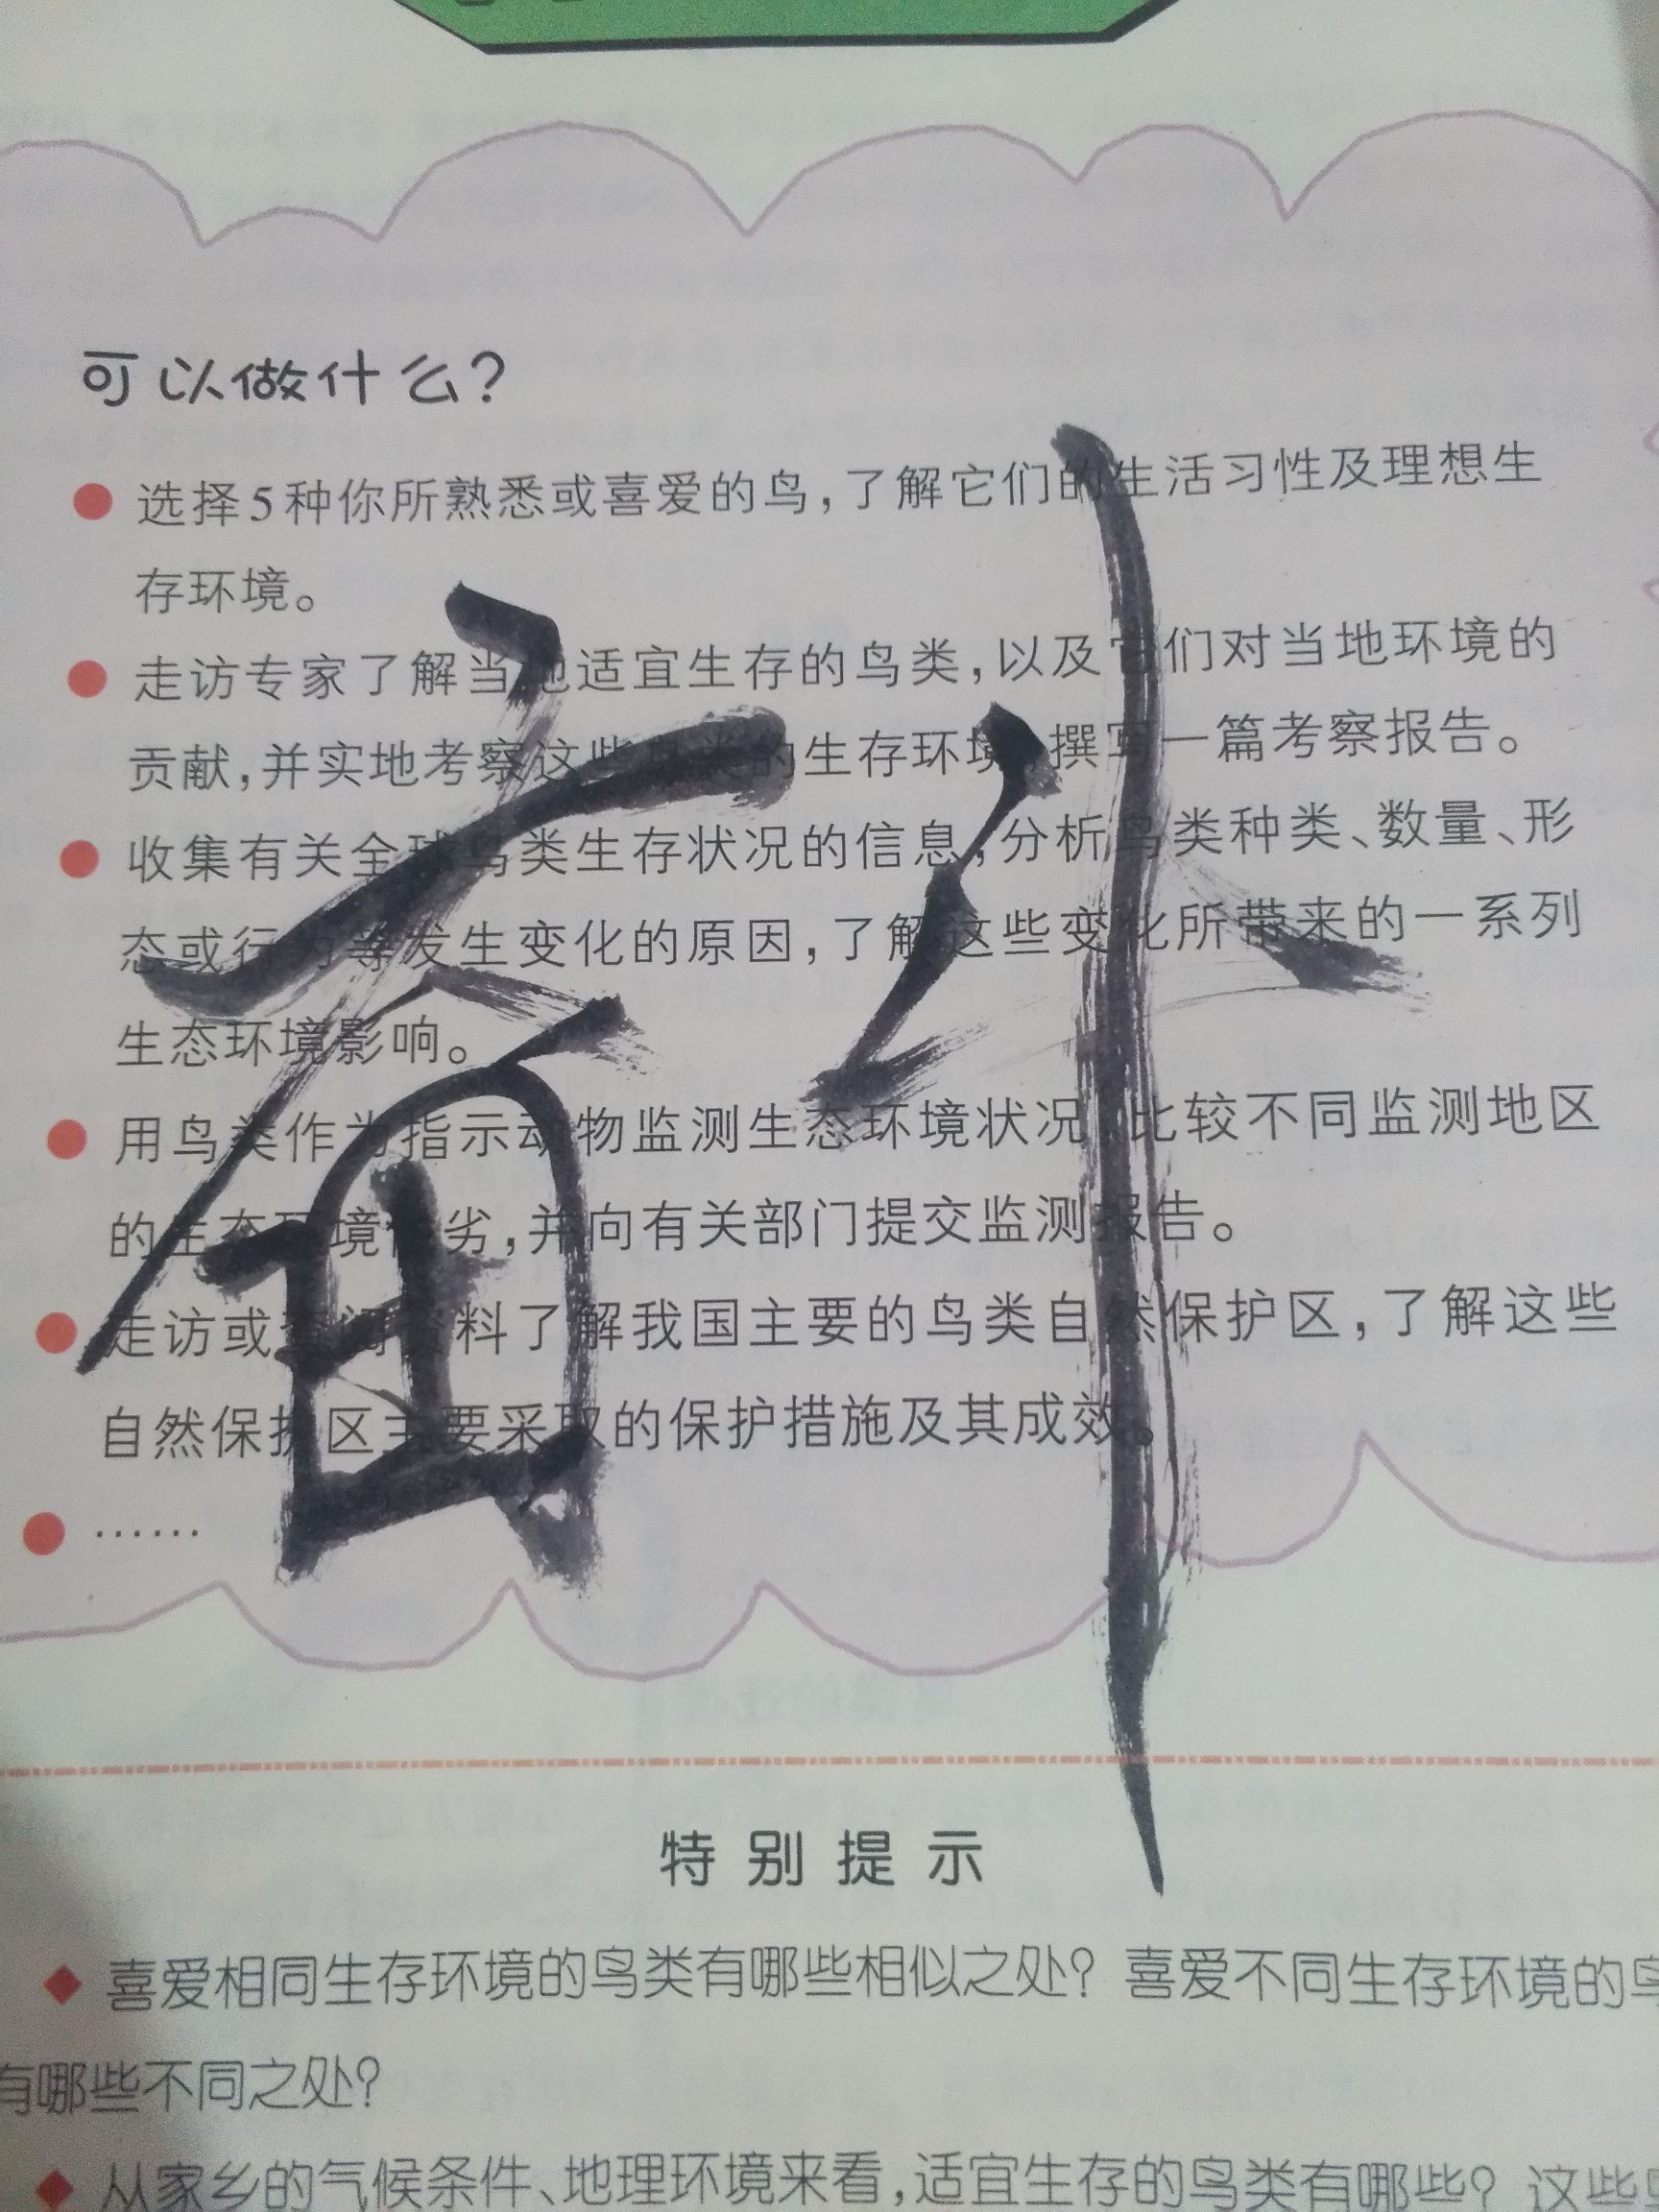 可以做什么?
选择5种你所熟悉或喜爱的鸟,了解它们的生活习性及理想生
存环境。
走访专家了解当地适宜生存的鸟类,以及它们对当地环境的
贡献,并实地考察这些鸟类的生存环境,撰写一篇考察报告。
收集有关全球鸟类生存状况的信息,分析鸟类种类、数量、形
态或行为等发生变化的原因,了解这些变化所带来的一系列
生态环境影响。
用鸟类作为指示动物监测生态环境状况,比较不同监测地区
的生态环境优劣,并向有关部门提交监测报告。
走访或查阅资料了解我国主要的鸟类自然保护区,了解这些
自然保护区主要采取的保护措施及其成效。
……
特别提示
喜爱相同生存环境的鸟类有哪些相似之处?喜爱不同生存环境的鸟
有哪些不同之处?
从家乡的气候条件、地理环境来看,适宜生存的鸟类有哪些?这些